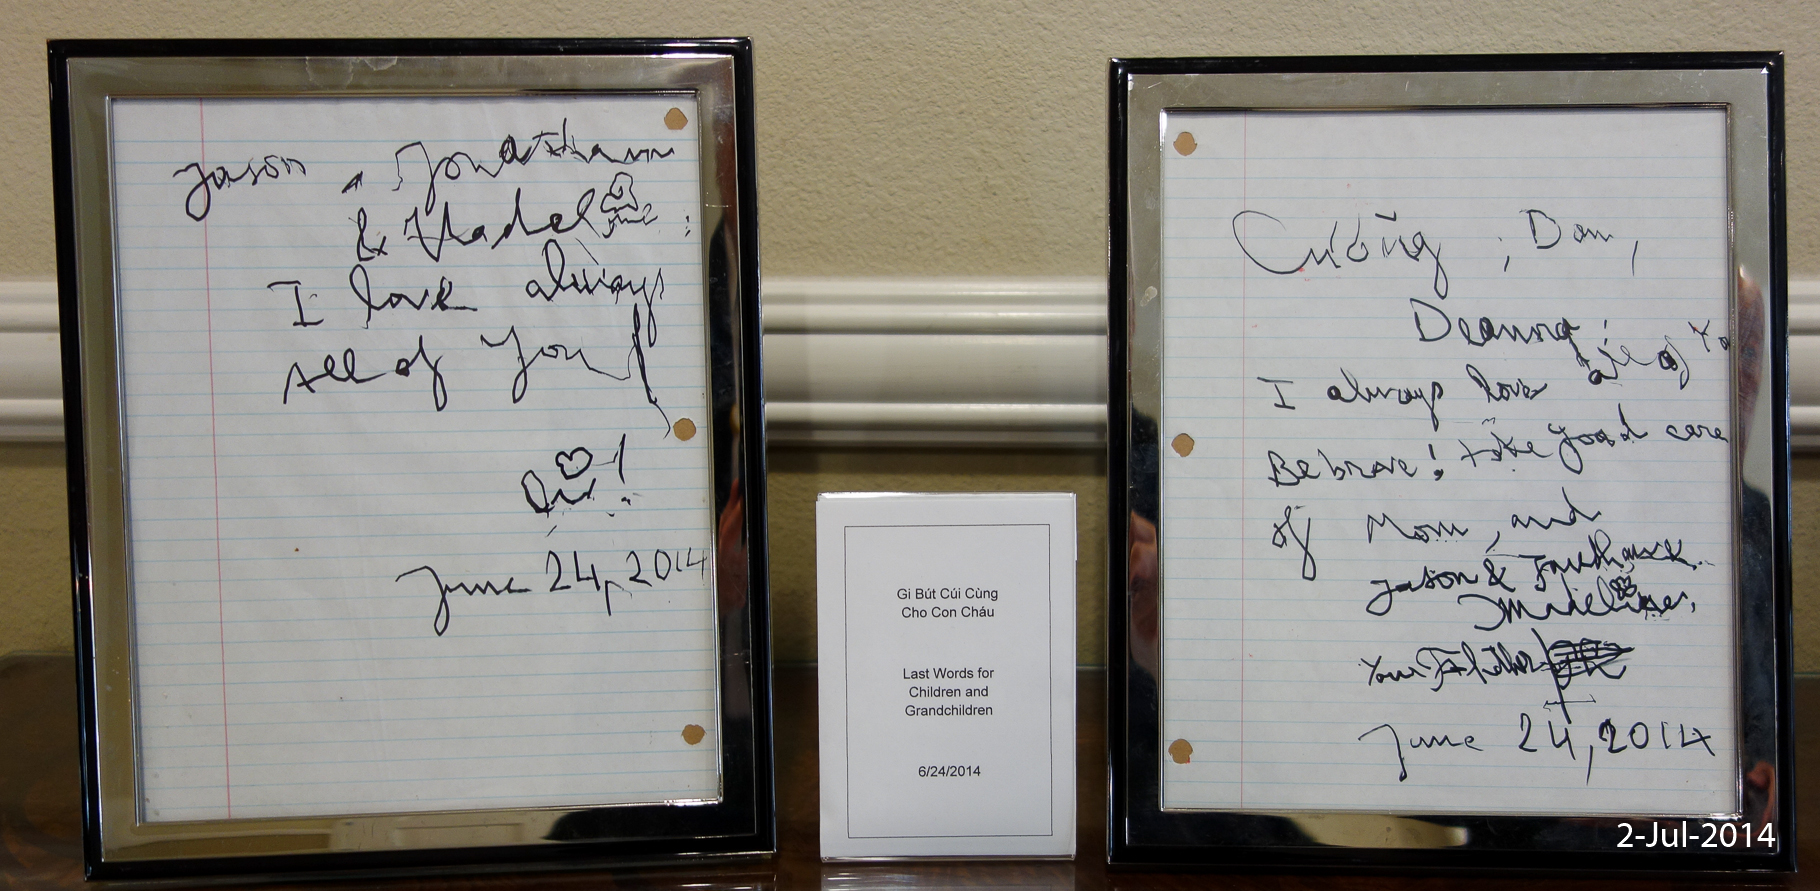 Jason, Jonathann
& Madel
I love always
All of You!
June 24, 2014
Gi Bút Cúi Cùng
Cho Con Cháu
Last Words for
Children and
Grandchildren
6/24/2014
Cường, Dam,
Deanna;
I always love all of Yo
Be brave! take good care
of Mom, and
Jason &
Your Father
June 24, 2014
2-Jul-2014